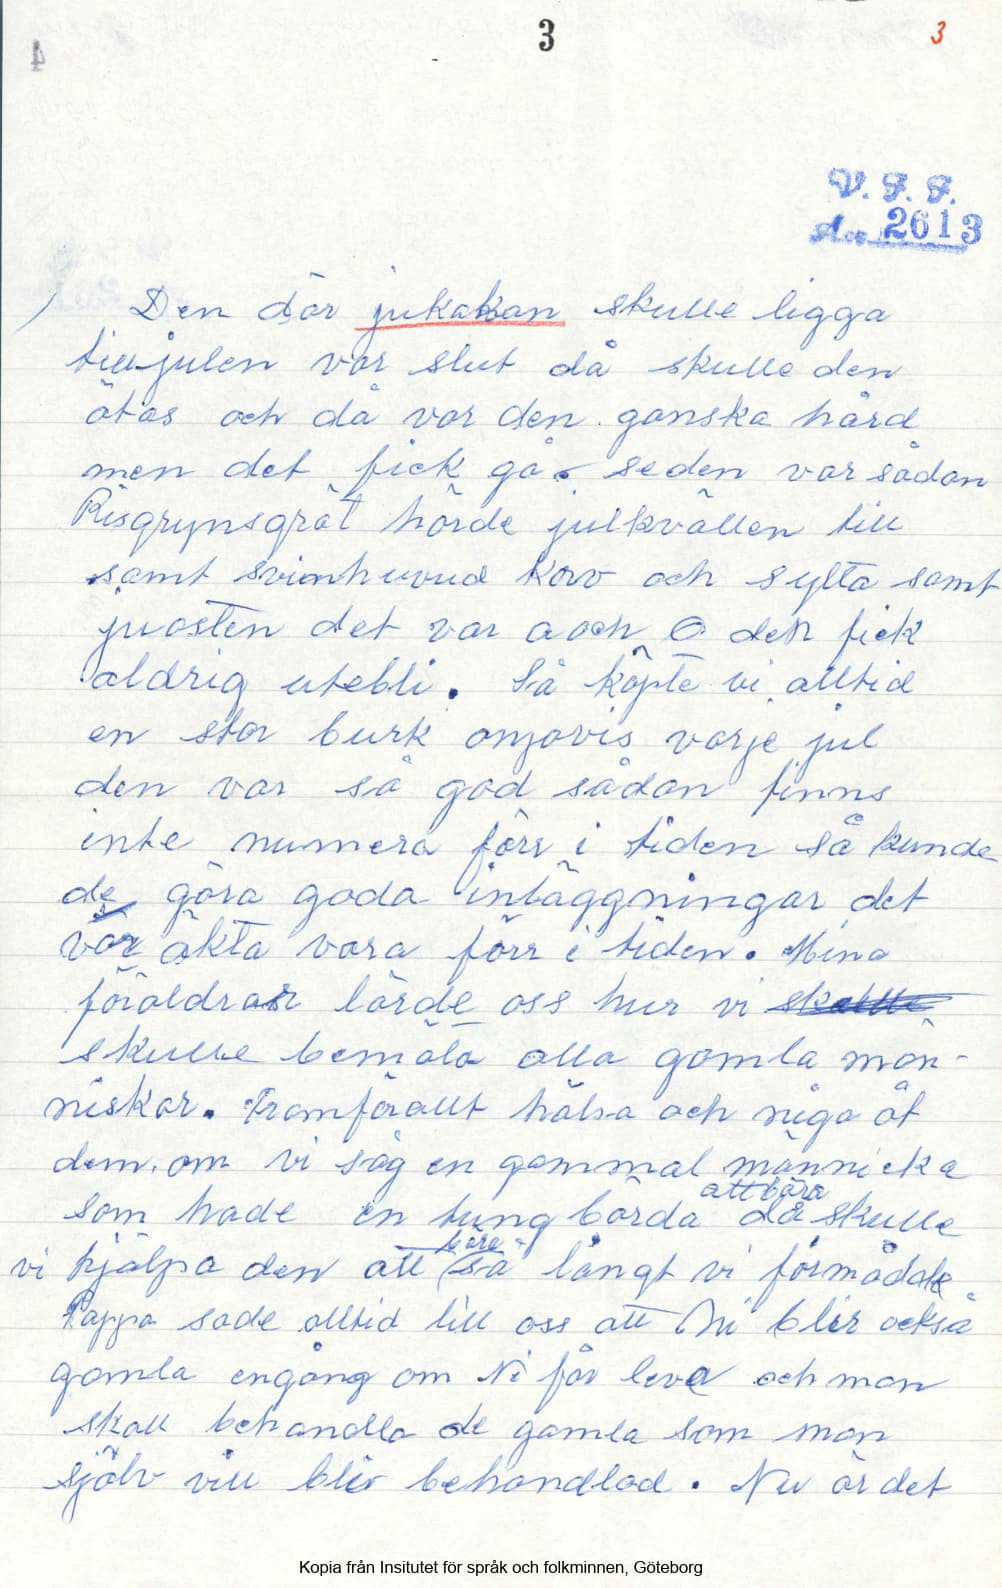 3
3
V. F. F.
Acc 2613
Den där jukakan skulle ligga
till julen var slut då skulle den
ätas och då var den ganska hård
men det fick gå. seden var sådan
Risgrynsgröt hörde julkvällen till
samt svinhuvud korv och sylta samt
juosten det var a och O den fick
aldrig utebli. Så köpte vi alltid
en stor burk anjovis varje jul
den var så god sådan finns
inte numera förr i tiden så kunde
de göra goda inläggningar det
var äkta vara förr i tiden. Mina
föräldrar lärde oss hur vi skulle
skulle bemöta alla gamla män-
niskor. Framförallt hälsa och niga åt
dem. om vi såg en gammal männicka
som hade en tung börda att bära då skulle
vi hjälpa den att bära så långt vi förmådde
Pappa sade alltid till oss att Ni blir också
gamla engång om Ni får leva och man
skall behandla de gamla som man
själv vill bliv behandlad. Nu är det
Kopia från Insitutet för språk och folkminnen, Göteborg